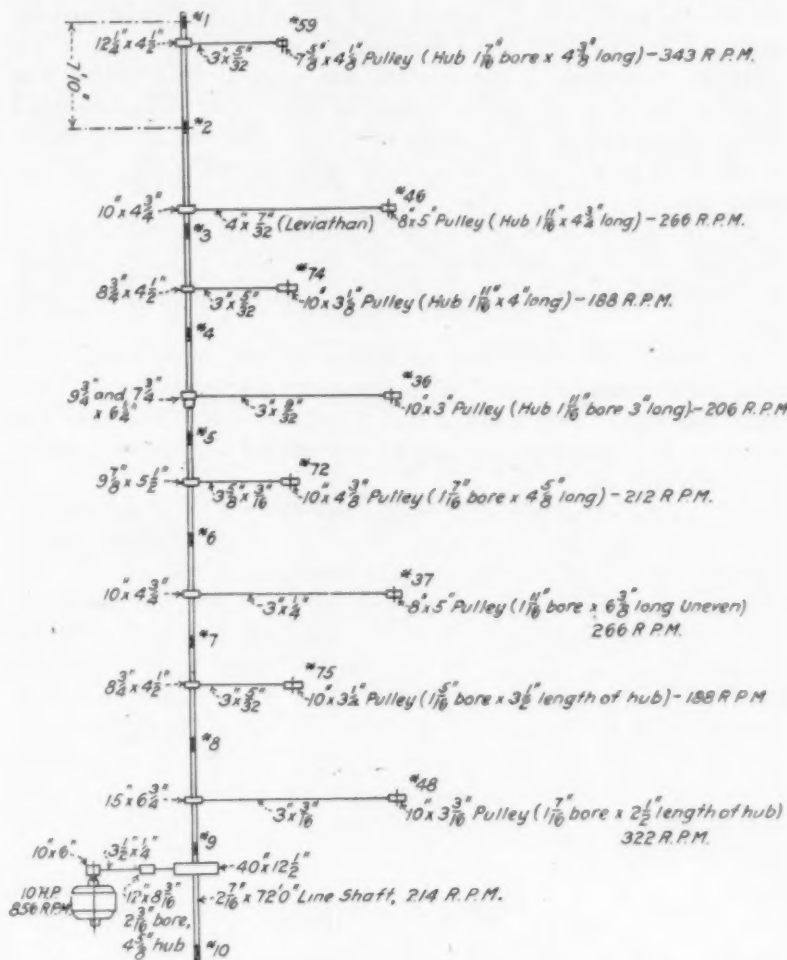 #1
#59
12 1/4" x 4 1/2"
3" x 5/32"
7 5/8" x 4 1/8" Pulley (Hub 1 7/16" bore x 4 3/8" long) - 343 R.P.M.
7'10"
#2
#46
10" x 4 3/4"
4" x 7/32" (Leviathan)
8" x 5" Pulley (Hub 1 11/16" x 4 3/4" long) - 266 R.P.M.
#3
#74
8 3/4" x 4 1/2"
3" x 5/32"
10" x 3 1/8" Pulley (Hub 1 11/16" x 4" long) - 188 R.P.M.
#4
#36
9 3/4" and 7 3/4"
x 6 1/4"
3" x 9/32"
10" x 3" Pulley (Hub 1 11/16" bore 3" long) - 206 R.P.M.
#5
#72
9 7/8" x 5 1/2"
3 5/8" x 3/16"
10" x 4 3/8" Pulley (1 7/16" bore x 4 5/8" long) - 212 R.P.M.
#6
#37
10" x 4 3/4"
3" x 1/4"
8" x 5" Pulley (1 11/16" bore x 6 3/8" long Uneven)
266 R.P.M.
#7
#75
8 3/4" x 4 1/2"
3" x 5/32"
10" x 3 1/4" Pulley (1 5/16" bore x 3 1/2" length of hub) - 188 R.P.M
#8
#48
15" x 6 3/4"
3" x 3/16"
10" x 3 3/16" Pulley (1 7/16" bore x 2 1/2" length of hub)
322 R.P.M.
#9
10" x 6"
3 1/2" x 1/4"
40" x 12 1/2"
10 H.P.
856 R.P.M.
12" x 8 3/16"
2 3/16" bore,
4 5/8" hub
2 7/16" x 72'0" Line Shaft, 214 R.P.M.
#10